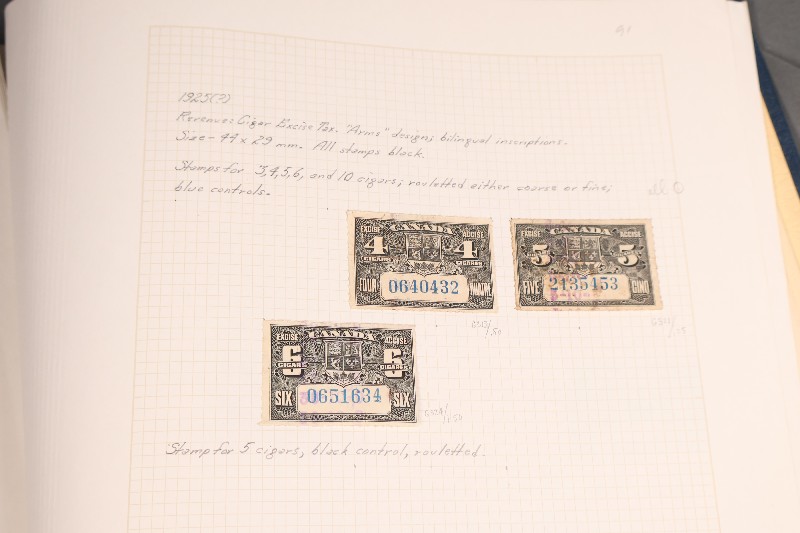 1925(?)
Revenue: Cigar Excise Tax. "Arms" design; bilingual inscriptions.
Size - 44 x 29 mm. All stamps black.
Stamps for 3,4,5,6, and 10 cigars; rouletted either coarse or fine;
blue controls.
all O
EXCISE CANADA ACCISE
4 4
CIGARS CIGARES
FOUR QUATRE
0640432
EXCISE CANADA ACCISE
5 5
FIVE CINQ
2135453
EXCISE CANADA ACCISE
6 6
CIGARS CIGARES
SIX SIX
0651634
Stamp for 5 cigars, black control, rouletted.